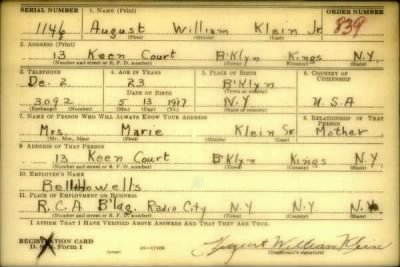 SERIAL NUMBER 1. NAME (Print) ORDER NUMBER
1146 August William Klein Jr. 839
(First) (Middle) (Last)
2. ADDRESS (Print)
13 Keen Court B'Klyn Kings N.Y.
(Number and street or R. F. D. number) (Town) (County) (State)
3. TELEPHONE 4. AGE IN YEARS 5. PLACE OF BIRTH 6. COUNTRY OF CITIZENSHIP
De. 2 23 B'Klyn
DATE OF BIRTH
3092 5 13 1917 N.Y. U.S.A
(Exchange) (Number) (Mo.) (Day) (Yr.) (State or country)
7. NAME OF PERSON WHO WILL ALWAYS KNOW YOUR ADDRESS 8. RELATIONSHIP OF THAT PERSON
Mrs. Marie Klein Sr. Mother
(Mr., Mrs., Miss) (First) (Middle) (Last)
9. ADDRESS OF THAT PERSON
13 Keen Court B'Klyn Kings N.Y
(Number and street or R. F. D. number) (Town) (County) (State)
10. EMPLOYER'S NAME
Bell Howell's
11. PLACE OF EMPLOYMENT OR BUSINESS
R.C.A. B'ldg. Radio City N.Y N.Y. N.Y.
(Number and street or R. F. D. number) (Town) (County) (State)
I AFFIRM THAT I HAVE VERIFIED ABOVE ANSWERS AND THAT THEY ARE TRUE.
REGISTRATION CARD
D. S. S. Form 1 August William Klein